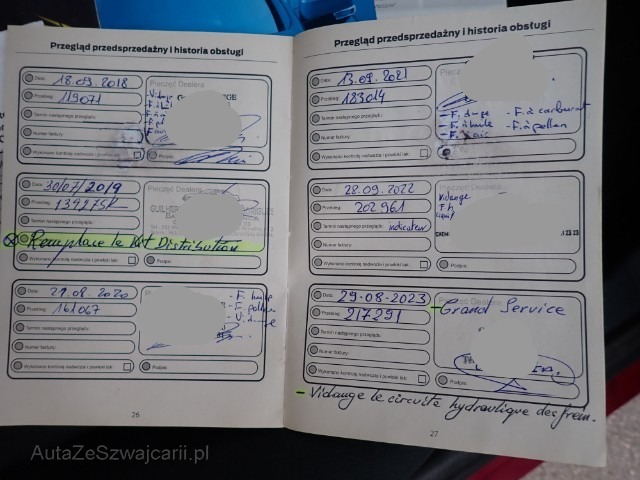 Przegląd przedsprzedażny i historia obsługi
Data: 18.09.2018
Pieczęć Dealera
Przebieg: 119071
Termin następnego przeglądu:
Numer faktury:
Wykonano kontrolę nadwozia i powłoki lak.:
Podpis:
Data: 30/07/2019
Pieczęć Dealera
Przebieg:
Termin następnego przeglądu:
Remplace le Kit Distribution
Wykonano kontrolę nadwozia i powłoki lak.:
Podpis:
Data: 29.08.2020
Przebieg: 161067
Termin następnego przeglądu:
Numer faktury:
Wykonano kontrolę nadwozia i powłoki lak.:
Podpis:
26
Przegląd przedsprzedażny i historia obsługi
Data: 13.09.2021
Pieczęć
Przebieg: 183014
- F. à carburat
Termin następnego przeglądu:
- F. à huile - F. à pollen
Numer faktury:
Wykonano kontrolę nadwozia i powłoki lak.:
Podpis:
Data: 28.09.2022
Pieczęć Dealera
Vidange
Przebieg: 202961
F. h
Termin następnego przeglądu: indicateur
Numer faktury:
Wykonano kontrolę nadwozia i powłoki lak.:
Podpis:
Data: 29-08-2023
Pieczęć Dealera
- Grand Service
Przebieg: 217291
Termin następnego przeglądu:
Numer faktury:
Wykonano kontrolę nadwozia i powłoki lak.:
Podpis:
- Vidange le circuite hydraulique des frein.
27
AutaZeSzwajcarii.pl